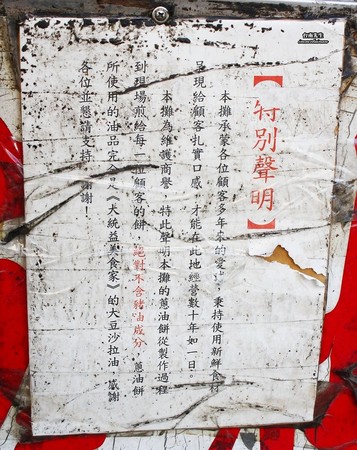 【特別聲明】
本攤承蒙各位顧客多年來的愛 秉持使用新鮮食材
呈現給顧客扎實口感 才能在此地經營數十年如一日。
本攤為維護商譽，特此聲明本攤的蔥油餅從製作過程
到現場煎給每 位顧客的餅，絕對不含豬油成分，蔥油餅
所使用的油品完 是《大統益美食家》的大豆沙拉油，感謝
各位並懇請支持， 謝！